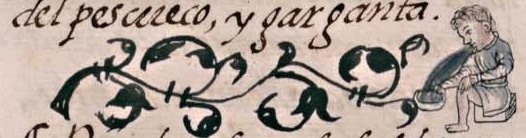 del pescueco, y garganta.